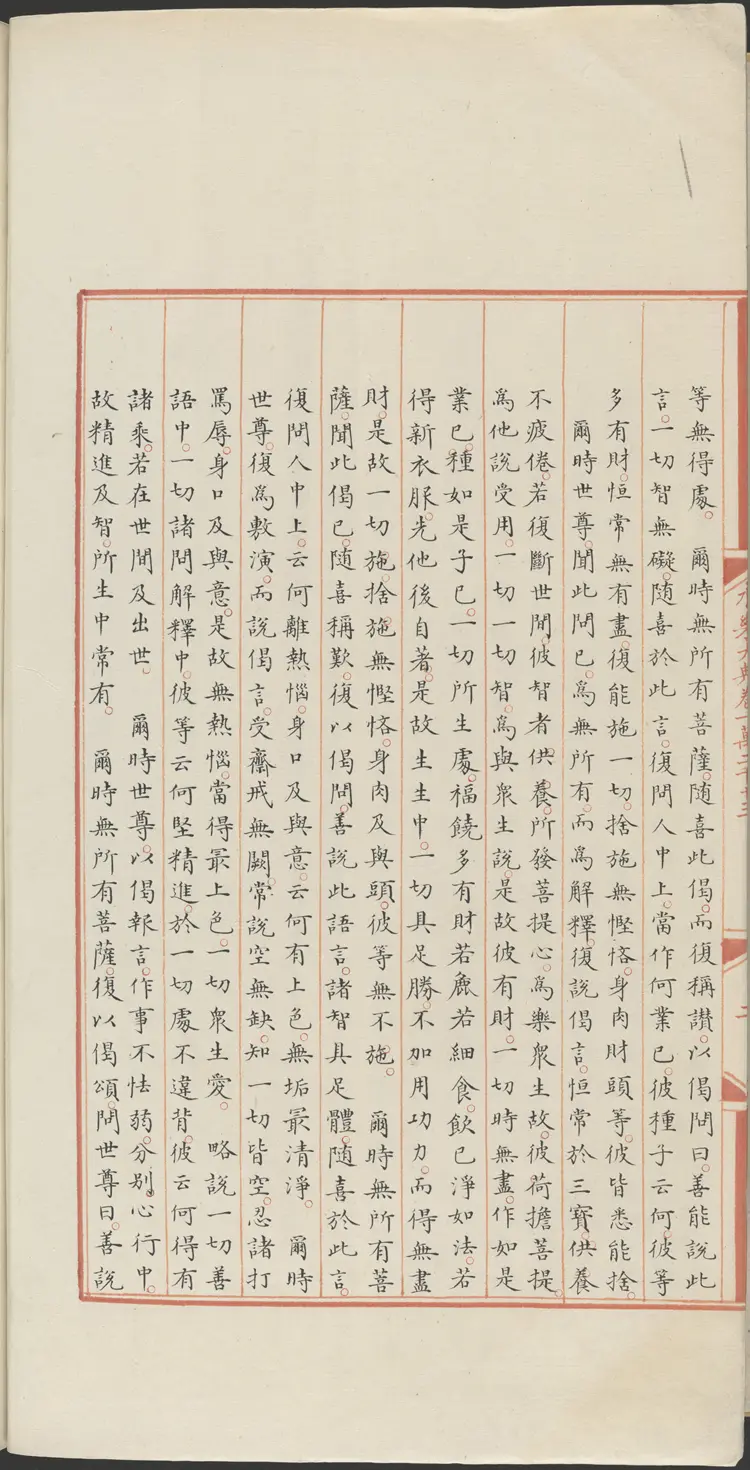 等無得處。　爾時無所有菩薩。隨喜此偈。而復稱讃。以偈問曰。善能說此
言。一切智無礙。隨喜於此言。復問人中上。當作何業已。彼種子云何。彼等
多有財。恒常無有盡。復能施一切。捨施無慳悋。身肉財頭等。彼皆悉能捨。
爾時世尊。聞此問已。爲無所有。而爲解釋。復說偈言。恒常於三寶。供養
不疲倦。若復斷世間。彼智者供養。所發菩提心。爲樂衆生故。彼荷擔菩提。
爲他說受用。一切一切智。爲與衆生說。是故彼有財。一切時無盡。作如是
業已。種如是子已。一切所生處。福饒多有財。若麁若細食。飲已淨如法。若
得新衣服。先他後自著。是故生生中。一切具足勝。不加用功力。而得無盡
財。是故一切施。捨施無慳悋。身肉及與頭。彼等無不施。　爾時無所有菩
薩。聞此偈已。隨喜稱歎。復以偈問。善說此語言。諸智具足體。隨喜於此言。
復問人中上。云何離熱惱。身口及與意。云何有上色。無垢最清淨。　爾時
世尊。復爲敷演。而說偈言。受齋戒無闕。常說空無缺。知一切皆空。忍諸打
罵辱。身口及與意。是故無熱惱。當得最上色。一切衆生愛。　略說一切善
語中。一切諸問解釋中。彼等云何堅精進。於一切處不違背。彼云何得有
諸乘。若在世間及出世。　爾時世尊。以偈報言。作事不怯弱。分別心行中。
故精進及智。所生中常有。　爾時無所有菩薩。復以偈頌。問世尊曰。善說